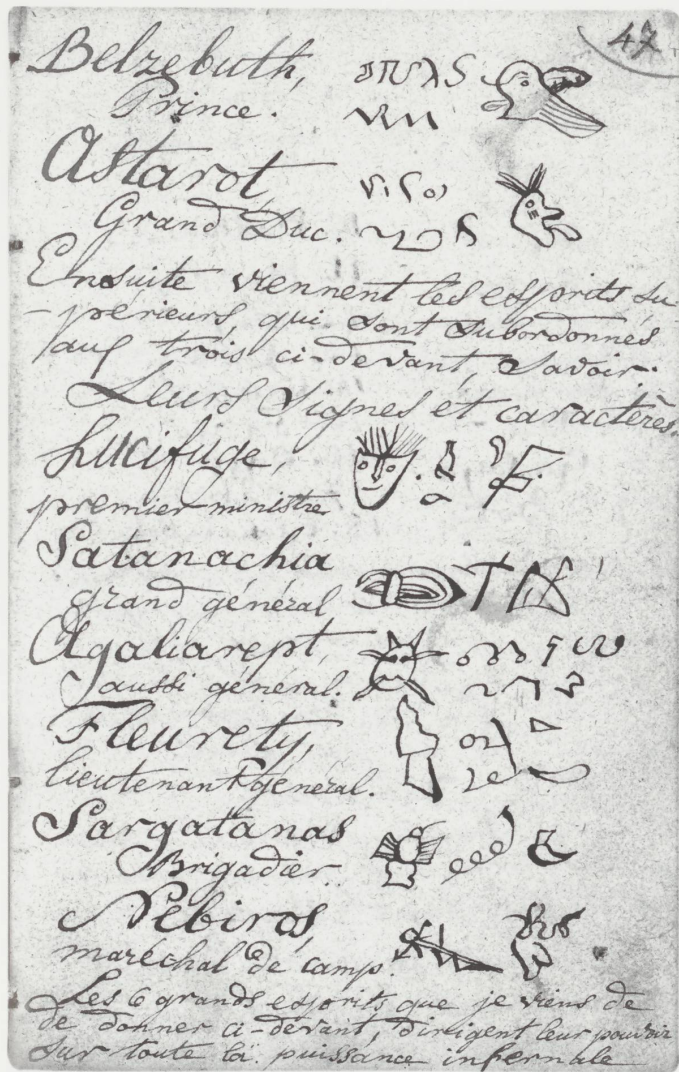 47
Belzebuth,
Prince.
Astarot,
Grand Duc.
Ensuite viennent les esprits su-
-périeurs, qui sont subordonnés
aux trois ci-devant, savoir.
Leurs signes et caractères.
Lucifuge,
premier ministre
Satanachia
grand général
Agaliarept,
aussi général.
Fleurety,
lieutenant général.
Sargatanas
Brigadier.
Nebiros,
maréchal de camp.
Les 6 grands esprits que je viens de
de donner ci-devant, dirigent leur pouvoir
sur toute la puissance infernale